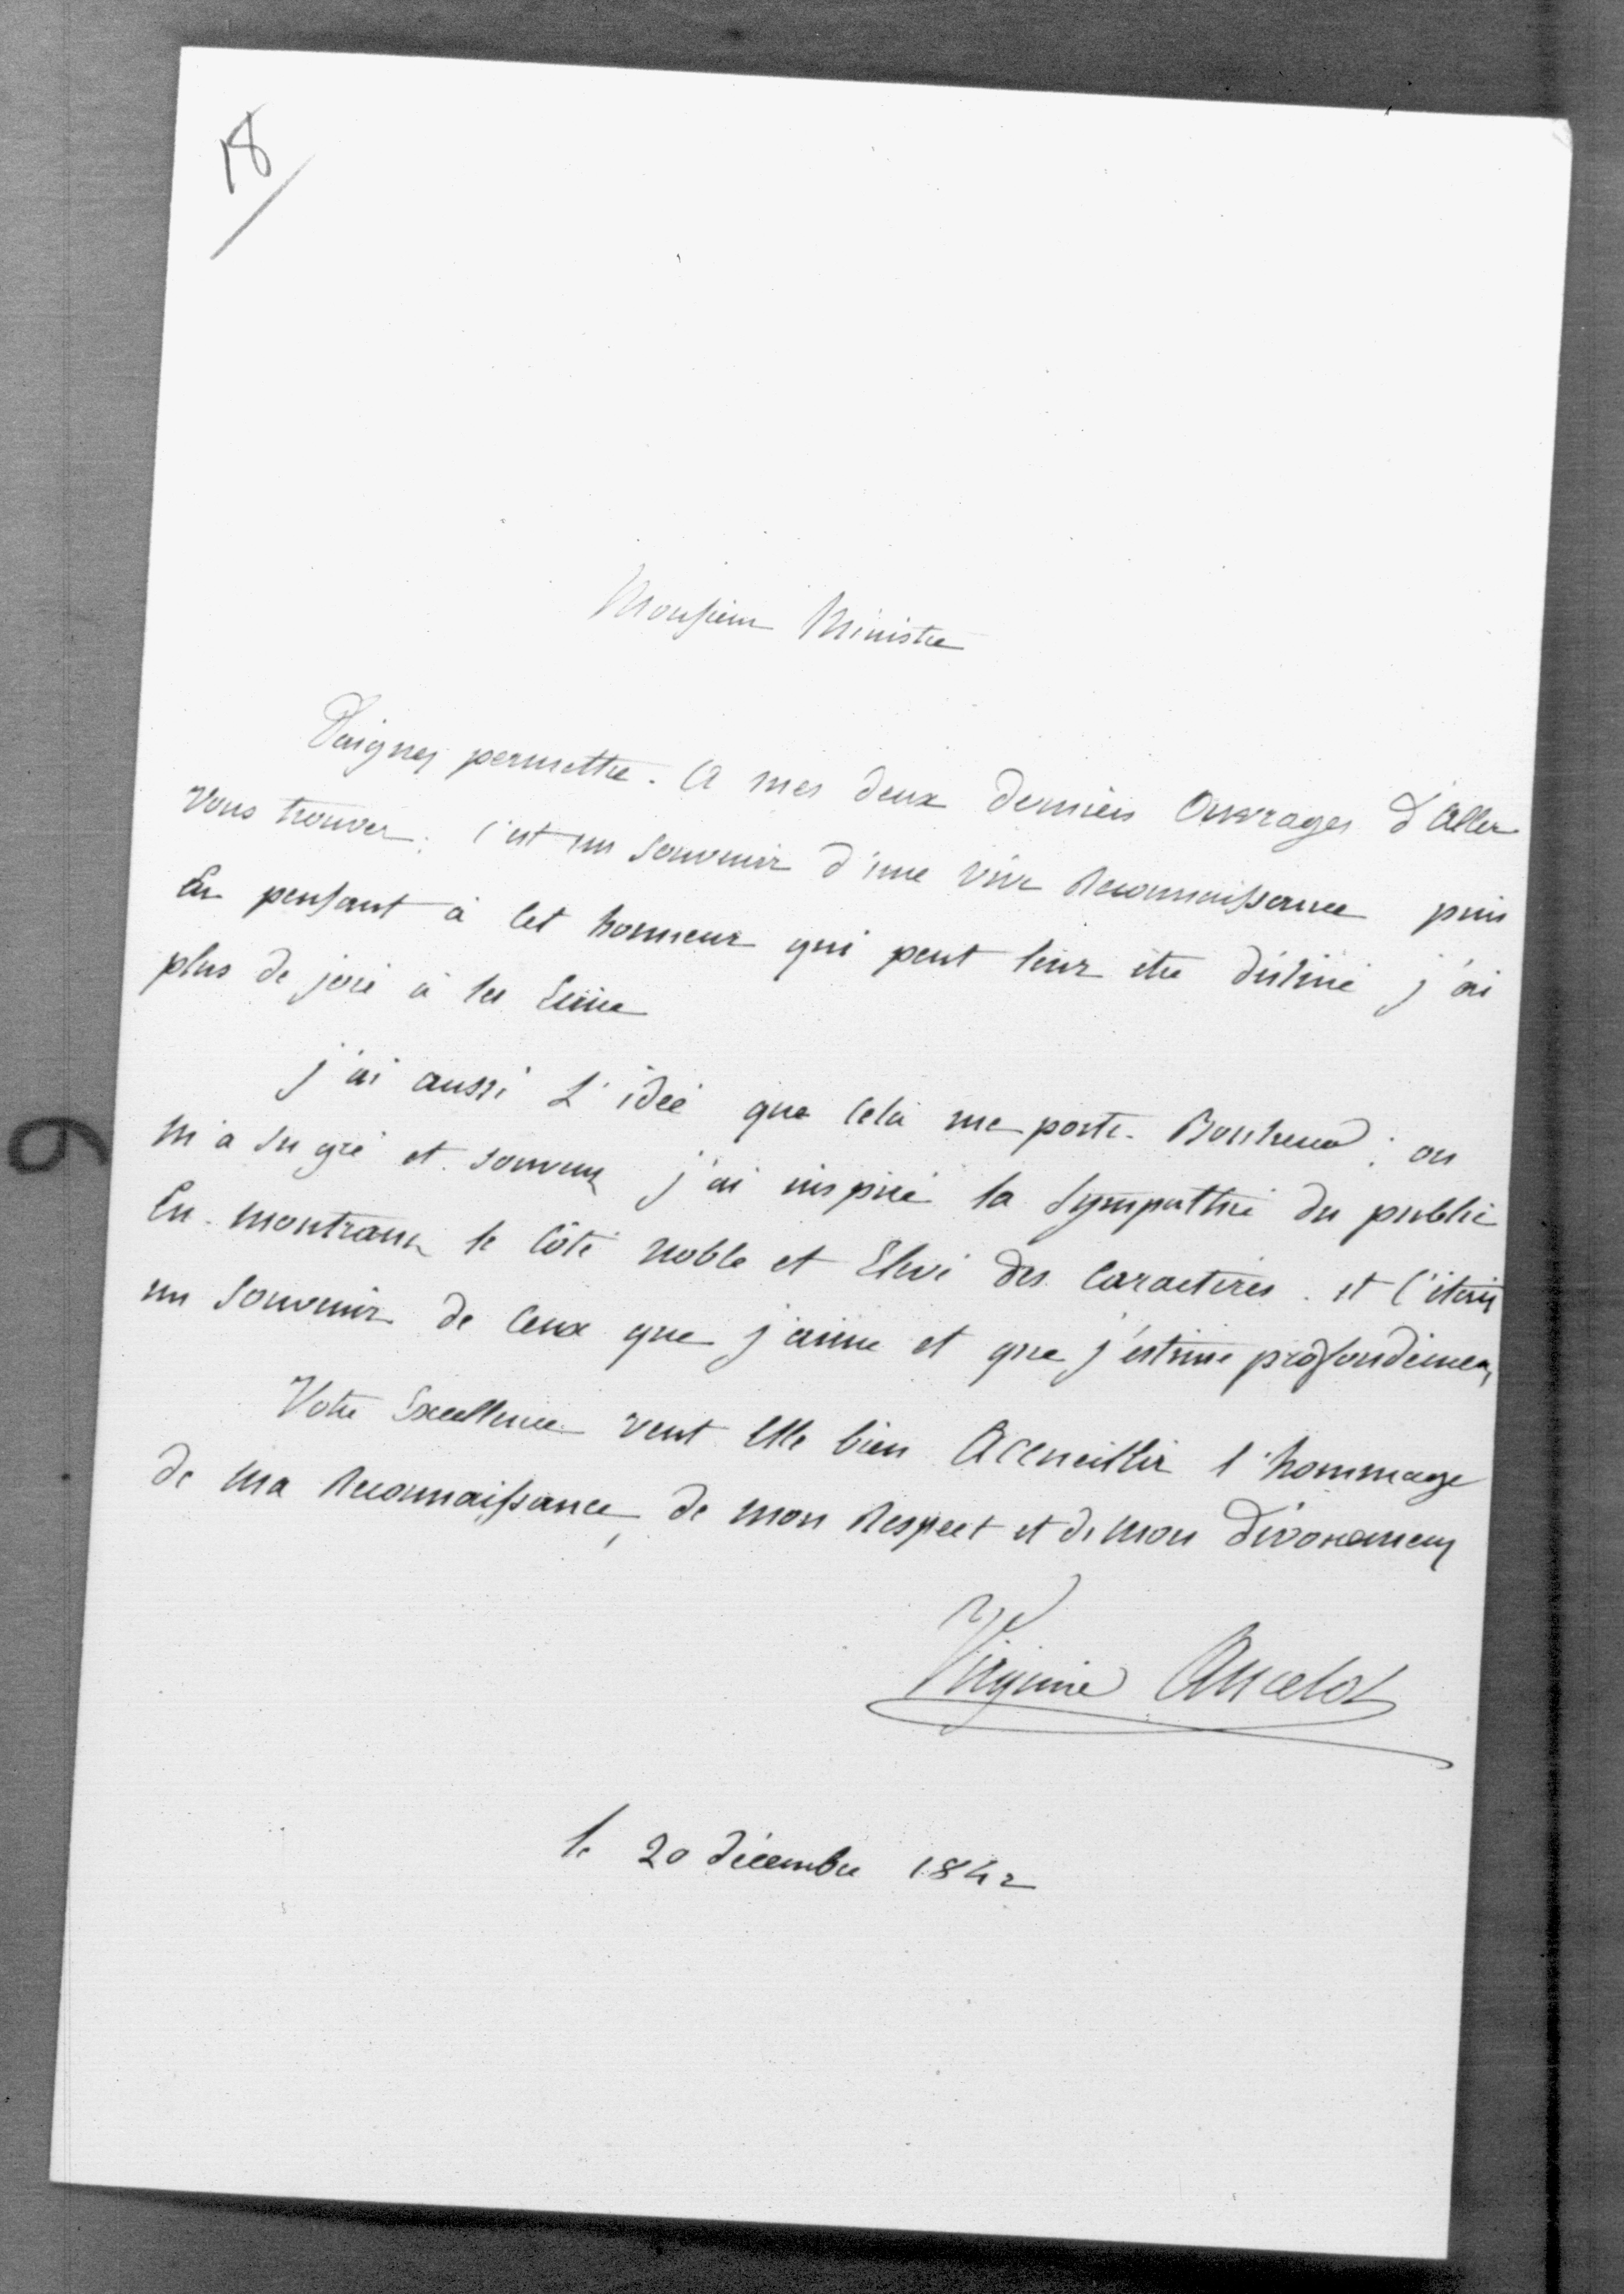 18
Monsieur Ministre
Daignez permettre. A mes deux derniers Ouvrages d'Aller
Vous trouver. c'est un Souvenir d'une vive Reconnaissance puis
En pensant à Cet honneur qui peut leur être déstiné j'ai
plus de joie à les Ecrire
j'ai aussi L'idée que Cela me porte. Bonheur : on
m'a su gré et souvent j'ai inspiré la Sympathie du public
En montrant le Côté noble et Elevé des Caractères. et C'était
un Souvenir de Ceux que j'aime et que j'estime profondément
Votre Excellence veut Elle bien Accueillir l'hommage
de Ma Reconnaissance, de mon Respect et de mon Dévouement
Virginie Ancelot
le 20 décembre 1842
6